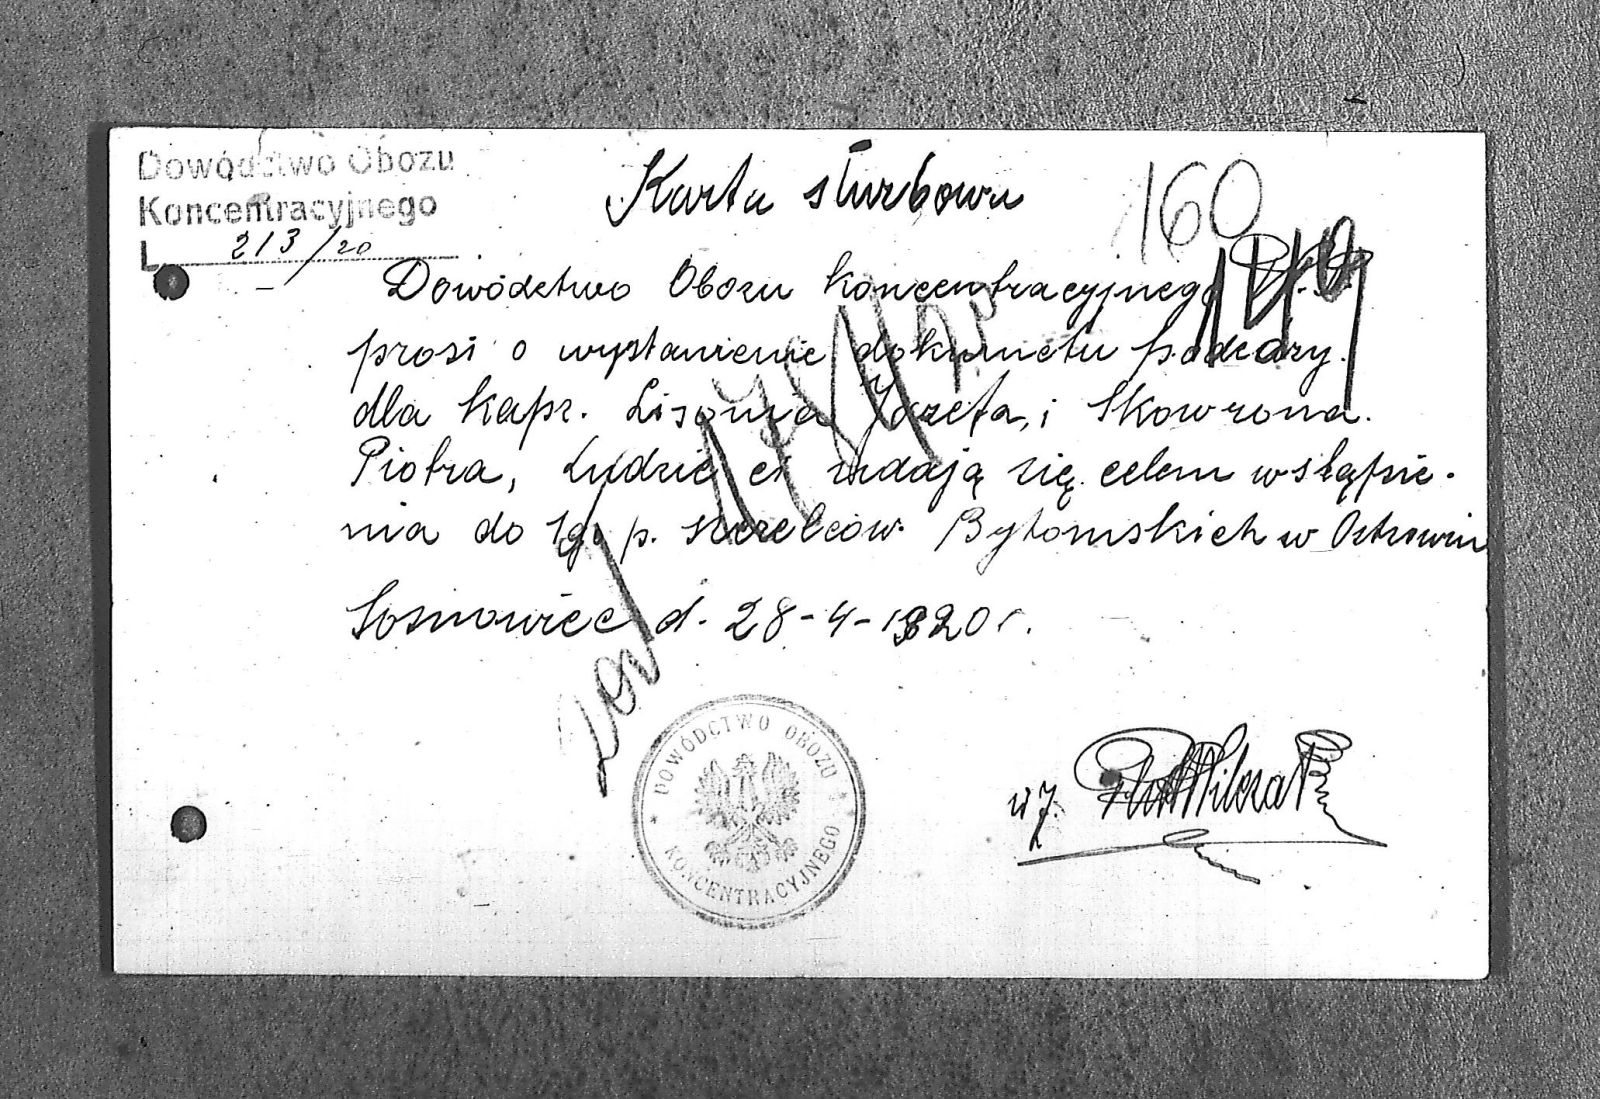 Dowództwo Obozu
Koncentracyjnego
L. 213/20
Karta służbowa
160
149
Dowództwo Obozu Koncentracyjnego
prosi o wystawienie dokumetu podróży.
dla kapr. Lisonia Józefa, i Skowrona.
Piotra, Ludzie ci udają się celem wstąpie-
nia do 1go p. strzelców Bytomskich w Ostrowiu
Sosnowiec d. 28-4-1920 r.
DOWÓDCTWO OBOZU
KONCENTRACYJNEGO
w z.